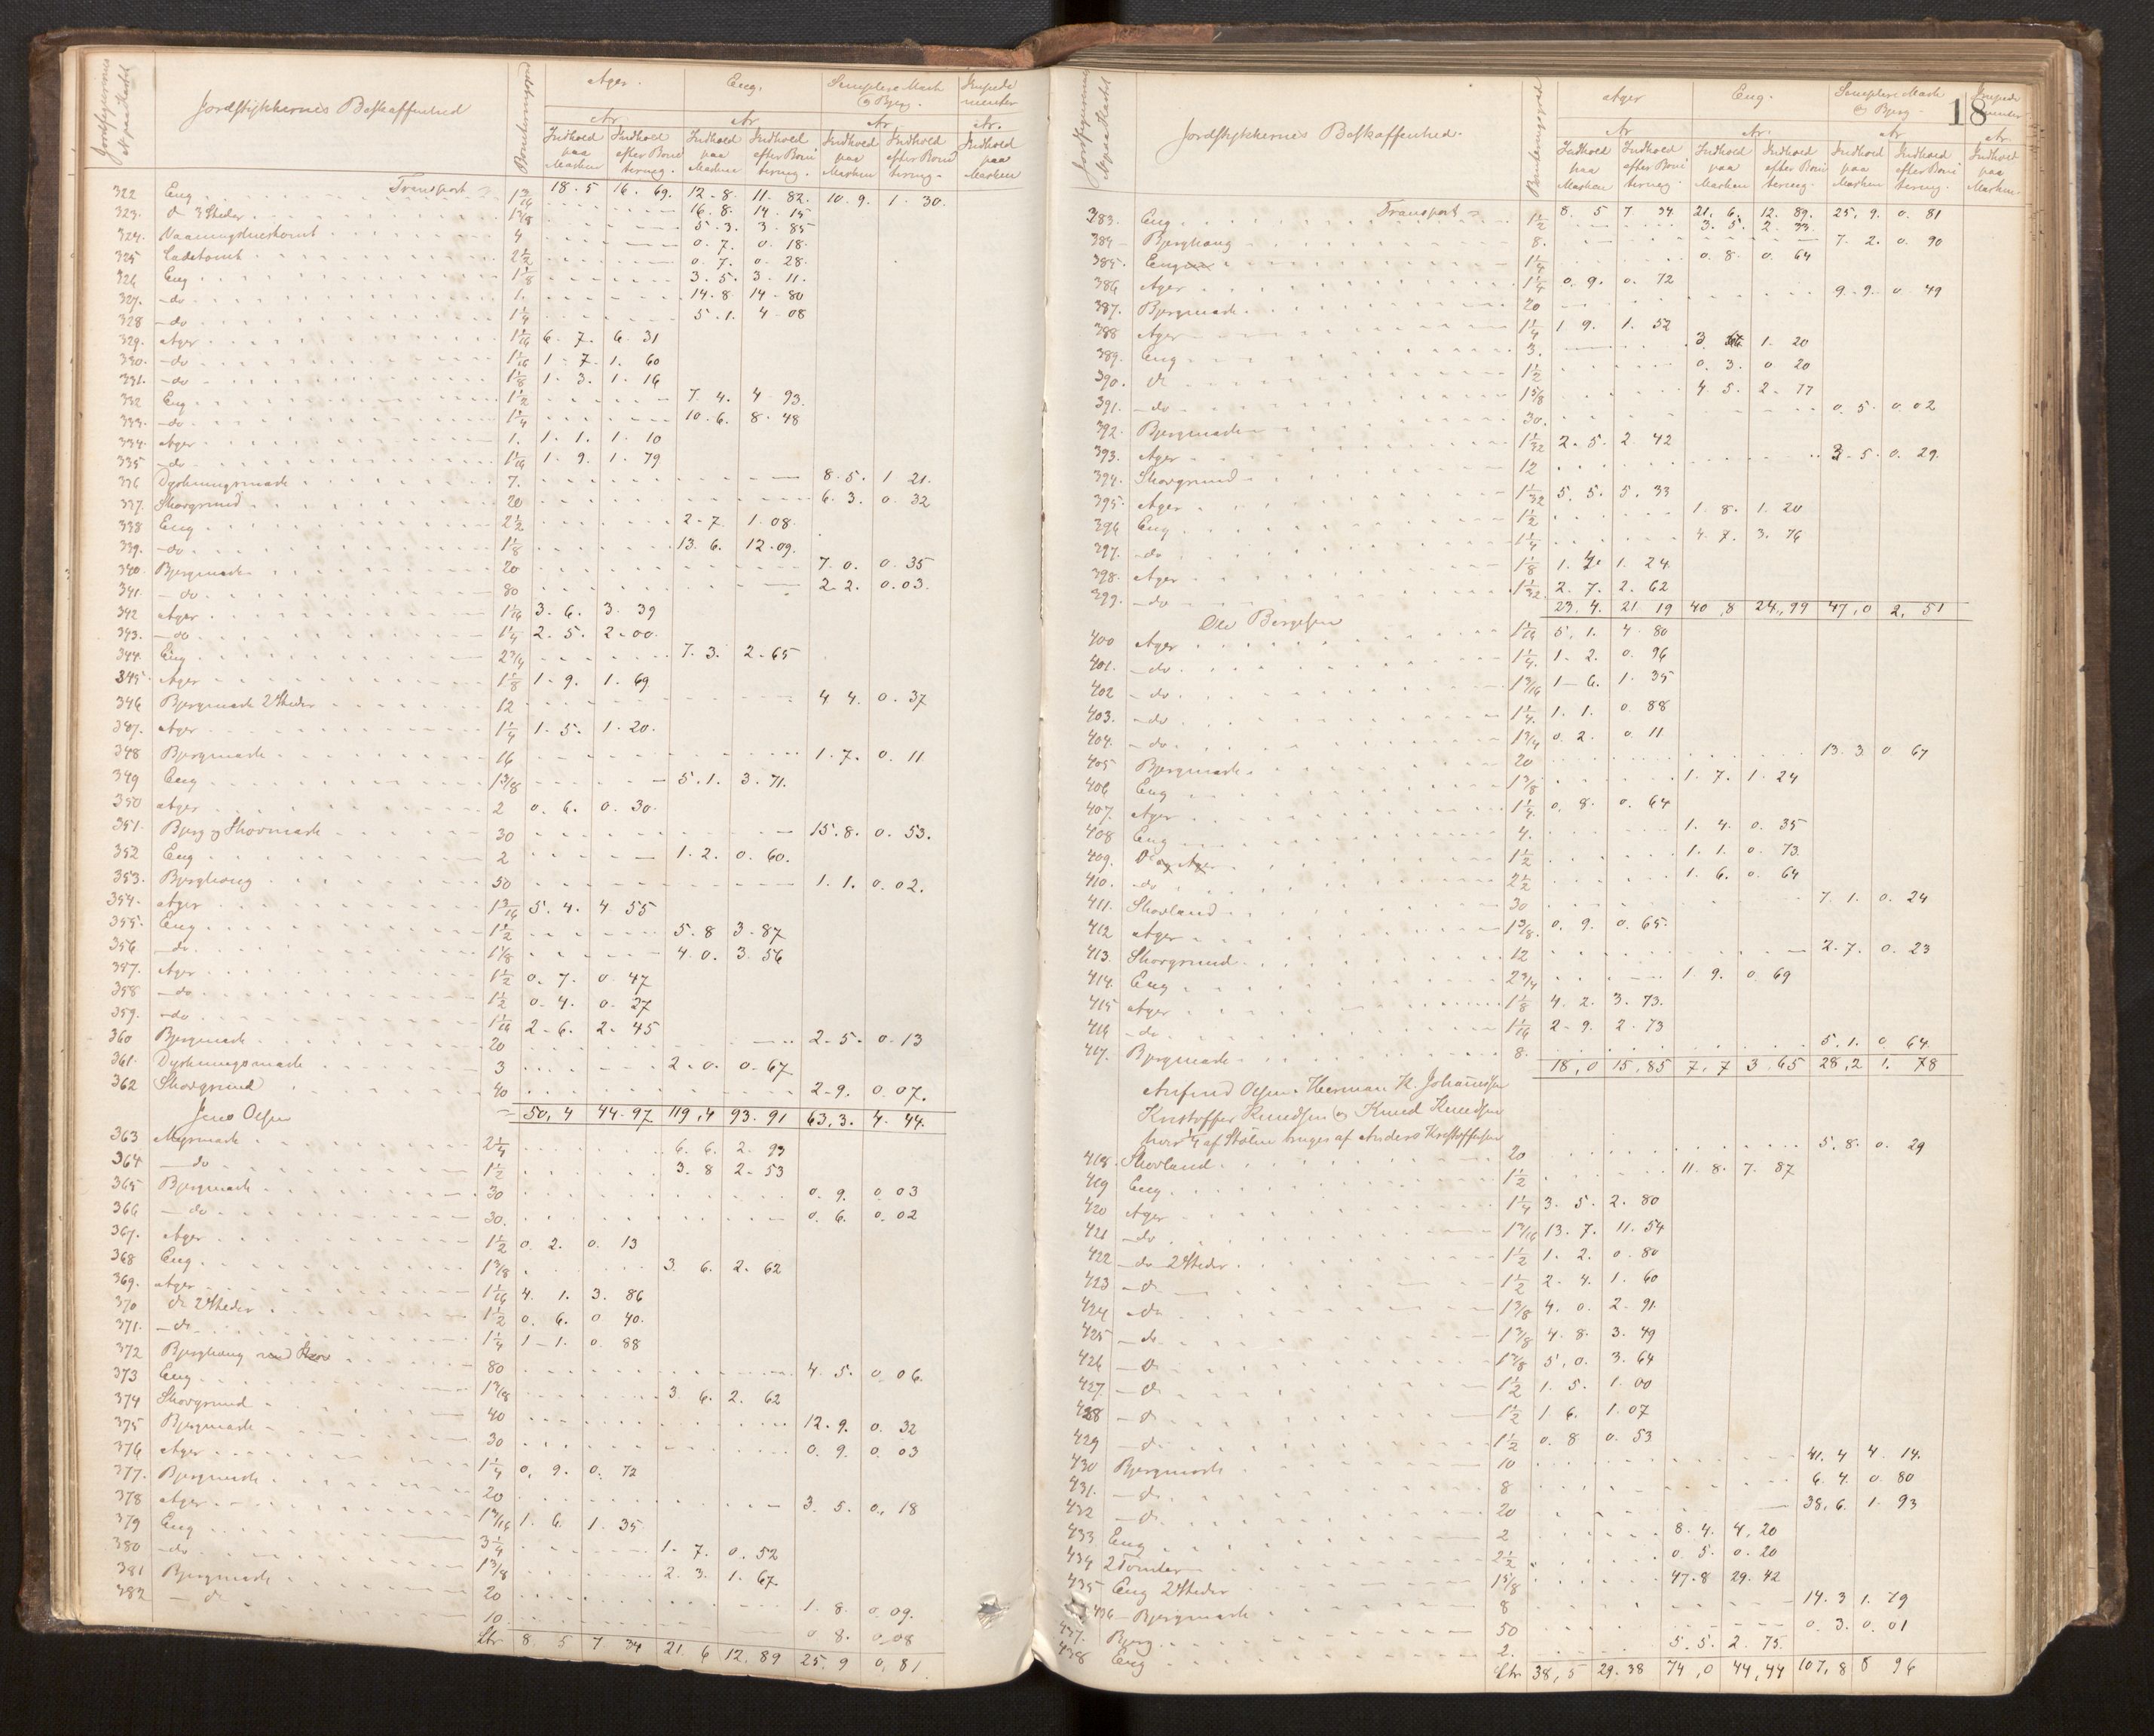 Jordstykkernes Beskaffenhed
Ager. Eng. Simplere Mark og Bjerg. Impedimenter
Ar Ar Ar Ar.
Indhold paa Marken Indhold efter Bonitering. Indhold paa Marken Indhold efter Bonitering. Indhold paa Marken Indhold efter Bonitering. Indhold paa Marken
Transport 18.5 16.69. 12.8. 11.82. 10.9. 1.30.
322 Eng 1 3/16 16.8. 14.15
323. do 3 Steder 1 3/8 5.3. 3.85
324. Vaaningshustomt 4 0.7. 0.18.
325 Ladetomt 2 1/2 0.7. 0.28.
326 Eng 1 1/8 3.5. 3.11.
327. do 1. 14.8 14.80
328 do 1 1/4 5.1. 4.08
329. Ager 1 1/16 6.7. 6.31
330. do 1 1/16 1.7. 1.60
331. do 1 1/8 1.3. 1.16
332 Eng 1 1/2 7.4. 4.93.
333. do 1 1/4 10.6. 8.48
334. Ager 1. 1.1. 1.10
335 do 1 1/16 1.9. 1.79
336 Dyrkningsmark 7. 8.5. 1.21.
337. Skovgrund 20 6.3. 0.32
338 Eng 2 1/2 2.7. 1.08.
339. do 1 1/8 13.6. 12.09.
340. Bjergmark 20 7.0. 0.35
341. do 80 2.2. 0.03.
342 Ager 1 1/16 3.6. 3.39
343. do 1 1/4 2.5. 2.00.
344 Eng 2 3/4 7.3. 2.65
345. Ager 1 1/8 1.9. 1.69
346 Bjergmark 2 Steder 12 4.4. 0.37
347. Ager 1 1/4 1.5. 1.20.
348 Bjergmark 16 1.7. 0.11
349 Eng 1 3/8 5.1. 3.71.
350 Ager 2 0.6. 0.30.
351. Bjerg og Skovmark 30 15.8. 0.53.
352 Eng 2 1.2. 0.60.
353. Bjerghaug 50 1.1. 0.02.
354. Ager 1 3/16 5.4. 4.55
355. Eng 1 1/2 5.8 3.87
356 do 1 1/8 4.0. 3.56
357. Ager 1 1/2 0.7. 0.47
358 do 1 1/2 0.4. 0.27
359. do 1 1/16 2.6. 2.45
360 Bjergmark 20 2.5. 0.13
361. Dyrkningsmark 3 2.0. 0.67
362 Skovgrund 40 2.9. 0.07.
50,4 44.97 119,4 93.91 63,3. 4.44.
Jens Olsen
363 Myrmark 2 1/4 6.6. 2.93
364 do 1 1/2 3.8 2.53
365 Bjergmark 30 0.9. 0.03
366 do 30. 0.6. 0.02
367. Ager 1 1/2 0.2. 0.13
368 Eng 1 3/8 3.6. 2.62
369. Ager 1 1/16 4.1. 3.86
370 do 2 Steder 1 1/2 0.6. 0.40.
371. do 1 1/4 1.1. 0.88
372 Bjerghaug 80 4.5. 0.06.
373 Eng 1 3/8 3.6. 2.62
374 Skovgrund 40 12.9. 0.32
375 Bjergmark 30 0.9. 0.03
376 Ager 1 1/4 0.9. 0.72
377. Bjergmark 20 3.5. 0.18
378 Ager 1 3/16 1.6. 1.35
379 Eng 3 1/4 1.7. 0.52
380 do 1 3/8 2.3. 1.67.
381 Bjergmark 20 1.8. 0.09.
382 do 10. 0.8. 0.08
Ltr 8.5 7.34 21.6 12.89 25.9 0,81.
18
Jordstykkernes Beskaffenhed.
Ager Eng. Simplere Mark og Bjerg.
Ar Ar. Ar Ar.
Indhold paa Marken Indhold efter Bonitering. Indhold paa Marken Indhold efter Bonitering. Indhold paa Marken Indhold efter Bonitering. Indhold paa Marken
Transport 8.5 7.34 21.6. 12.89. 25.9. 0.81
383. Eng 1 1/2 3.5. 2.33
384 Bjerghaug 8. 7.2. 0.90
385. Eng 1 1/4 0.8. 0.64
386 Ager 1 1/4 0.9. 0.72
387. Bjergmark 20 9.9. 0.49
388 Ager 1 1/4 1.9. 1.52
389. Eng 3. 3. 1.20
390. do 1 1/2 0.3. 0.20
391. do 1 5/8 4.5. 2.77
392. Bjergmark 30. 0.5. 0.02
393. Ager 1 1/32 2.5. 2.42
394. Skovgrund 12 3.5. 0.29.
395. Ager 1 1/32 5.5. 5.33
396 Eng 1 1/2 1.8. 1.20
397. do 1 1/4 4.7. 3.76
398. Ager 1 1/8 1.4. 1.24
399. do 1 1/32. 2.7. 2.62
23.4. 21.19 40,8 24,99 47,0 2,51
Ole Bergesen
400 Ager 1 1/16 5.1. 4.80
401. do 1 1/4. 1.2. 0.96
402 do 1 3/16 1.6. 1.35
403. do 1 1/4. 1.1. 0.88
404. do 1 3/4 0.2. 0.11
405 Bjergmark 20 13.3 0.67
406 Eng 1 3/8 1.7. 1.24
407. Ager 1 1/4. 0.8. 0.64
408 Eng 4. 1.4. 0.35
409. Do 1 1/2 1.1. 0.73.
410. do 2 1/2 1.6. 0.64
411. Skovland 30 7.1. 0.24
412 Ager 1 3/8. 0.9. 0.65.
413. Skovgrund 12 2.7. 0.23
414. Eng 2 3/4 1.9. 0.69
415 Ager 1 1/8 4.2. 3.73.
416 do 1 1/16 2.9. 2.73
417. Bjergmark 8. 5.1. 0.64.
18,0 15,85 7,7 3.65 28,2 1.78
Anfind Olsen, Herman K. Johannessen
Kristoffer Knudsen og Knud Knudsen
hver 1/4 af Stølen bruges af Anders Kristoffersen
418. Skovland 20 5.8. 0.29
419 Eng 1 1/2 11.8. 7.87
420 Ager 1 1/4 3.5. 2.80
421 do 1 3/16 13.7. 11.54
422 do 2 Steder 1 1/2 1.2. 0.80
423 do 1 1/2 2.4. 1.60
424 do 1 3/8 4.0. 2.91.
425 do 1 3/8 4.8. 3.49
426 do 1 3/8 5,0. 3.64
427. do 1 1/2 1.5. 1.00
428 do 1 1/2 1.6. 1.07
429 do 1 1/2 0.8 0.53
430 Bjergmark 10 41.4 4.14.
431. do 8 6.4. 0.80
432 do 20 38,6. 1.93
433 Eng 2 8.4. 4,20
434 2 Tomter 2 1/2 0.5. 0.20
435 Eng 2 Steder 1 5/8 47.8 29.42
436 Bjergmark 8 14.3 1.79
437. Bjerg 50 0.3. 0.01
438 Eng 2. 5.5. 2.75.
Ltr 38,5 29.38 74,0 44,44 107,8 8.96